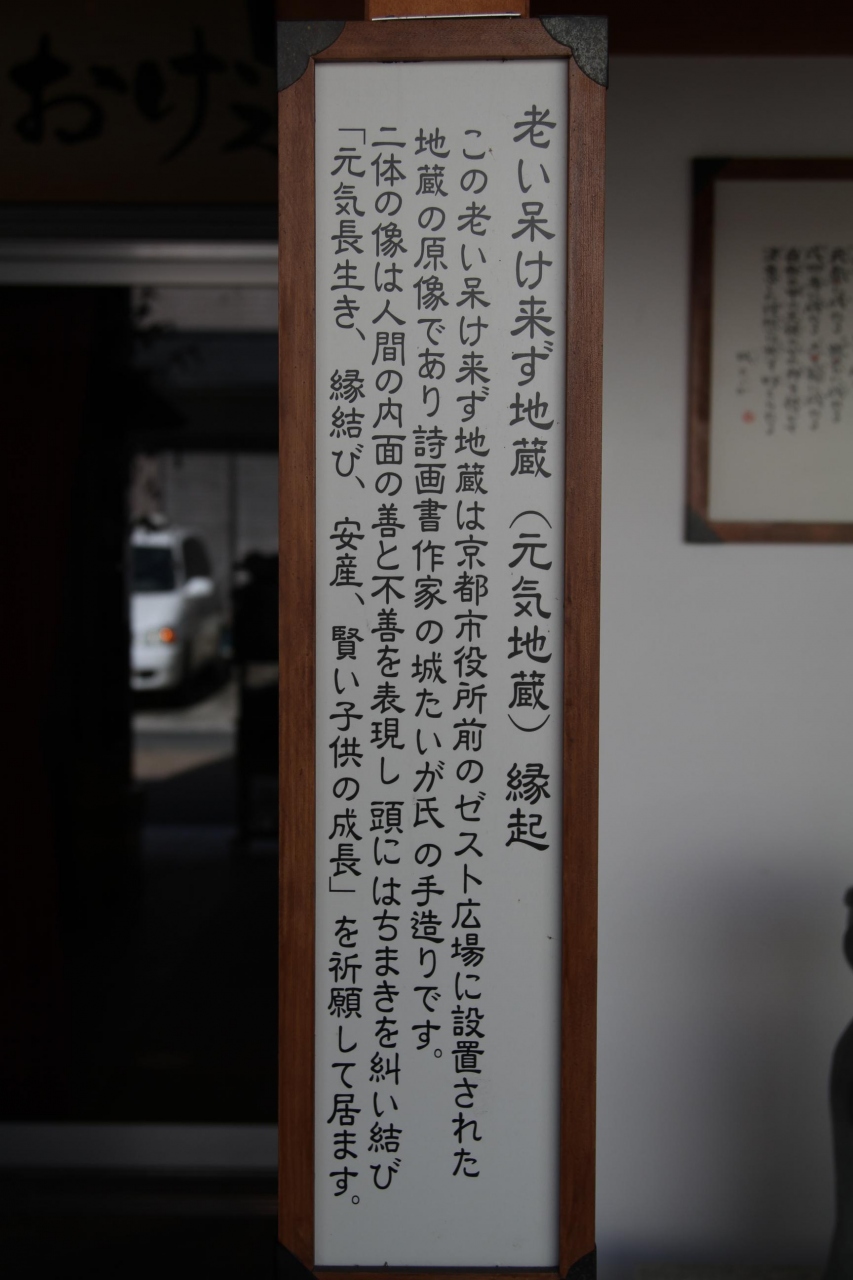 老い呆け来ず地蔵（元気地蔵）縁起
この老い呆け来ず地蔵は京都市役所前のゼスト広場に設置された
地蔵の原像であり詩画書作家の城たいが氏の手造りです。
二体の像は人間の内面の善と不善を表現し頭にはちまきを糾い結び
「元気長生き、縁結び、安産、賢い子供の成長」を祈願して居ます。
おけ